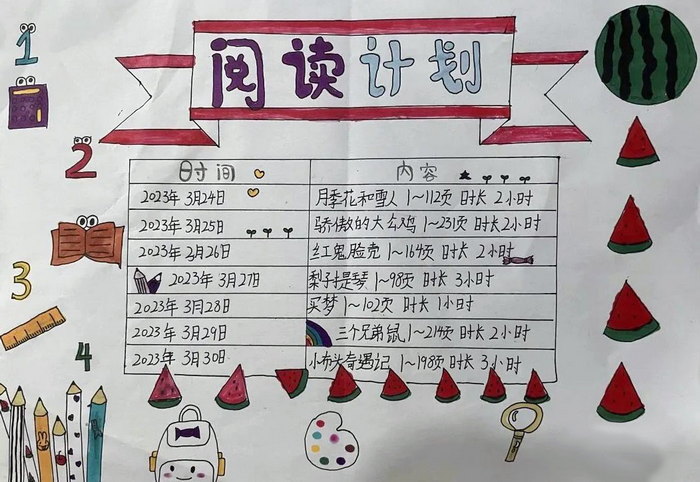 阅读计划
1
2
3
4
时间 内容
2023年3月24日 月季花和雪人 1~112页 时长 2小时
2023年3月25日 骄傲的大公鸡 1~231页 时长2小时
2023年2月26日 红鬼脸壳 1~164页 时长 2小时
2023年3月27日 梨子提琴 1~98页 时长 3小时
2023年3月28日 买梦 1~102页 时长 1小时
2023年3月29日 三个兄弟鼠 1~214页 时长 2小时
2023年3月30日 小布头奇遇记 1~198页 时长 3小时